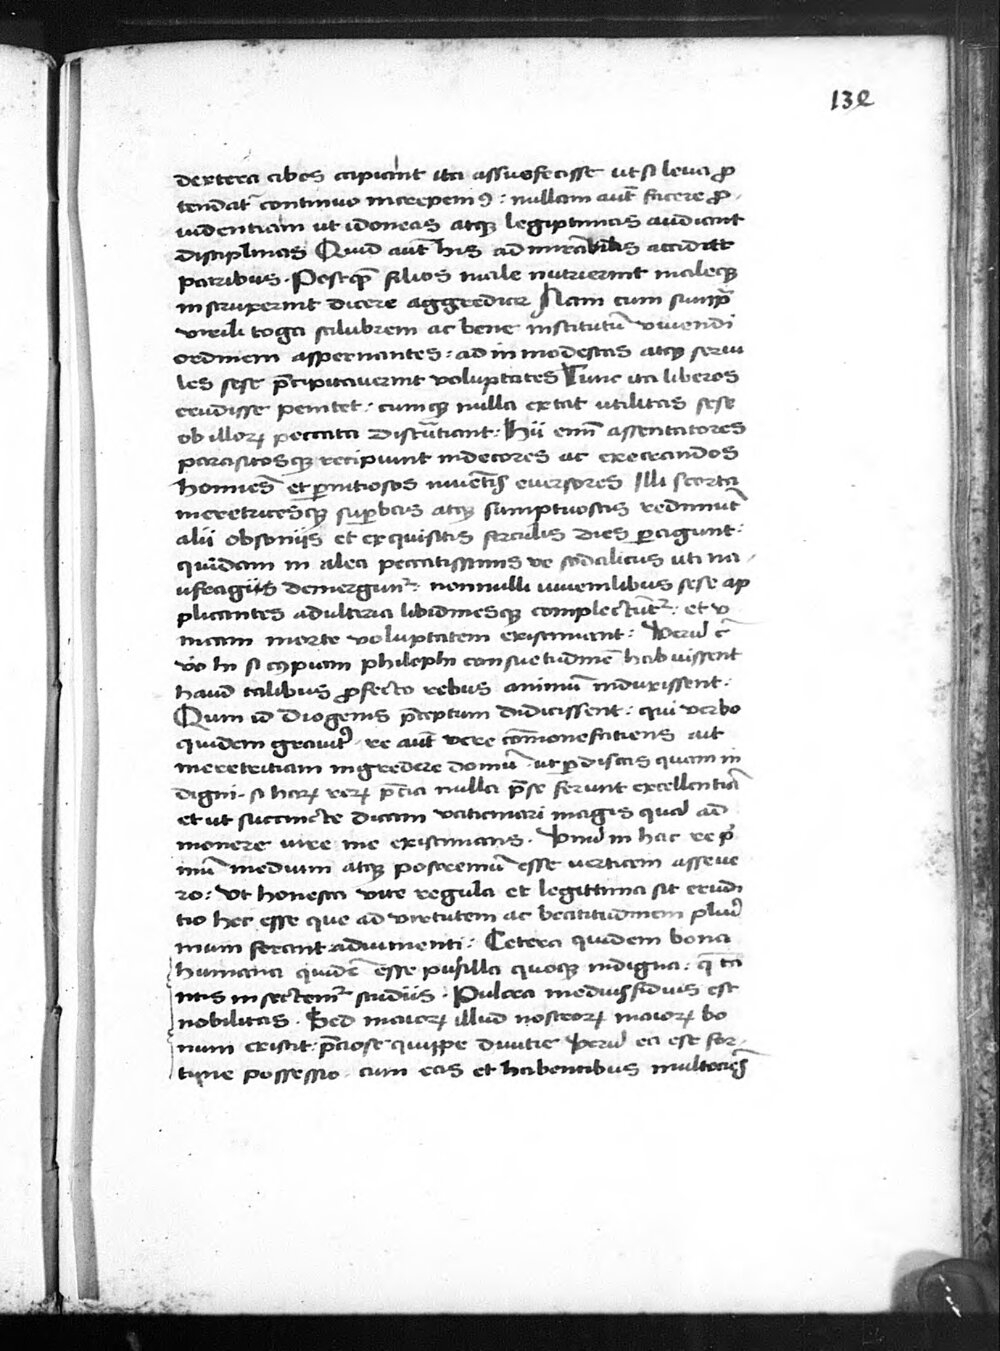 132
dextera cibos capiant ita assuefecisse ut si leva ꝓ
tendat continuo increpemꝰ : nullam aut̄ facere ꝓ
videntiam ut idoneas atqꝫ legiptimas audiant
disciplinas Quid aut̄ his admirabilibus accidat
patribus . Postqꝫ filios male nutrierint maleqꝫ
instruxerint dicere aggrediar Nam cum sumpta
virili toga salubrem ac bene institutū vivendi
ordinem aspernantes : ad inmodestas atqꝫ servi
les sese p̄cipitaverint voluptates Tunc ita liberos
erudisse penitet : cumqꝫ nulla extat utilitas sese
ob illoꝝ peccata discrutiant : Hii enī assentatores
parasitosqꝫ recipiunt indecores ac execrandos
homines et ꝑnitiosos iuvent̄ eversores Illi scorta
meretricesqꝫ suꝑbas atqꝫ sumptuosas redimūt
alii obsoniis et exquisitis ferculis dies ꝑagunt :
quidam in alea peccatissimis ve sodaliciis uti na
ufragiis demergunt᷑ : nonnulli iuvenilibus sese ap
plicantes adulteria libidinesqꝫ complectūt᷑ : et v
nicam morte voluptatem existimant : Verū c̄
v̄o hi si cypiam philophi consuetudinē habuissent
haud talibus ꝓfecto rebus animū induxissent :
Qum id Diogenis p̄ceptum didicissent : qui verbo
quidem gravitꝰ re aut̄ vere com̄onefatiens aut
meretritiam ingredere domū ut ꝑdiscas quam in
digni . si haꝝ reꝝ p̄cia nulla p̄se ferunt excellentiā
et ut succincte dicam vaticinari magis quā ad
monere iure me existimatis . Unū in hac re p̄
imū medium atqꝫ postremū esse verticem asseve
ro : Ut honesta vite regula et legittima sit erudi
tio hec esse que ad virtutem ac beatitudinem pluri
mum ferant adiumenti : Cetera quidem bona
humana quidē esse pusilla quoqꝫ indigna : q̄ ta
ntis insectem᷑ studiis . Pulcra mediusfidius est
nobilitas . Sed maioꝝ illud nostroꝝ maioꝝ bo
num existit : p̄ciose quippe divitie Verū ea est for
tune possessio cum eas et habentibus multociēs